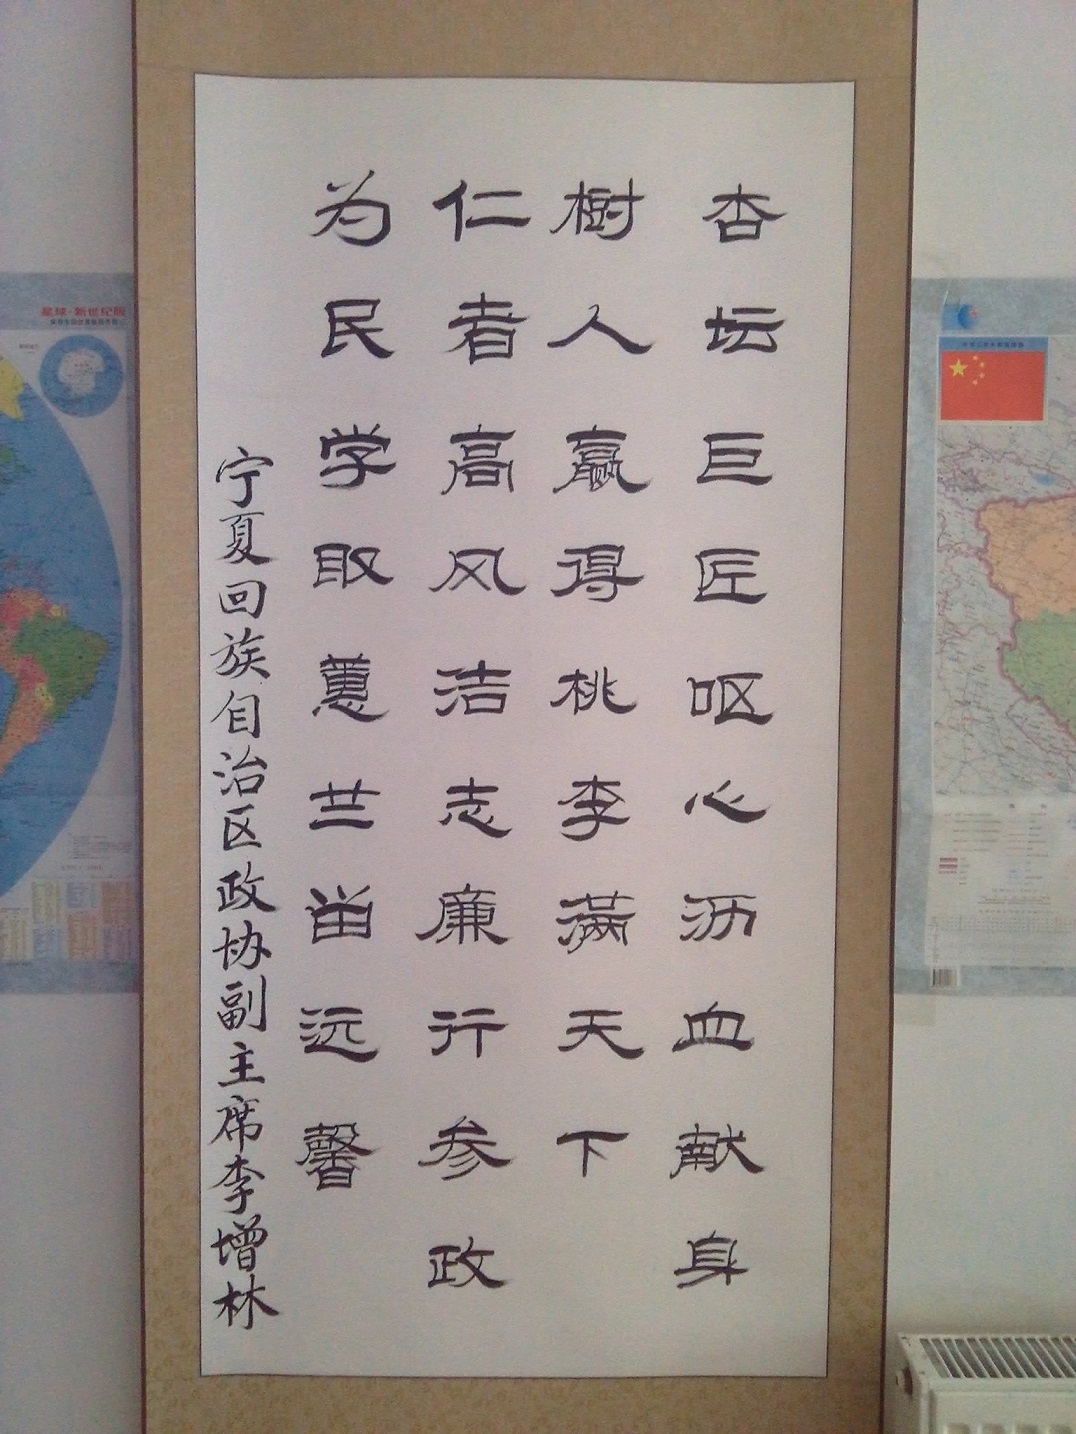 杏坛巨匠呕心沥血献身
树人赢得桃李满天下
仁者高风洁志廉行参政
为民学取蕙兰留远馨
宁夏回族自治区政协副主席李增林
星球·新世纪版